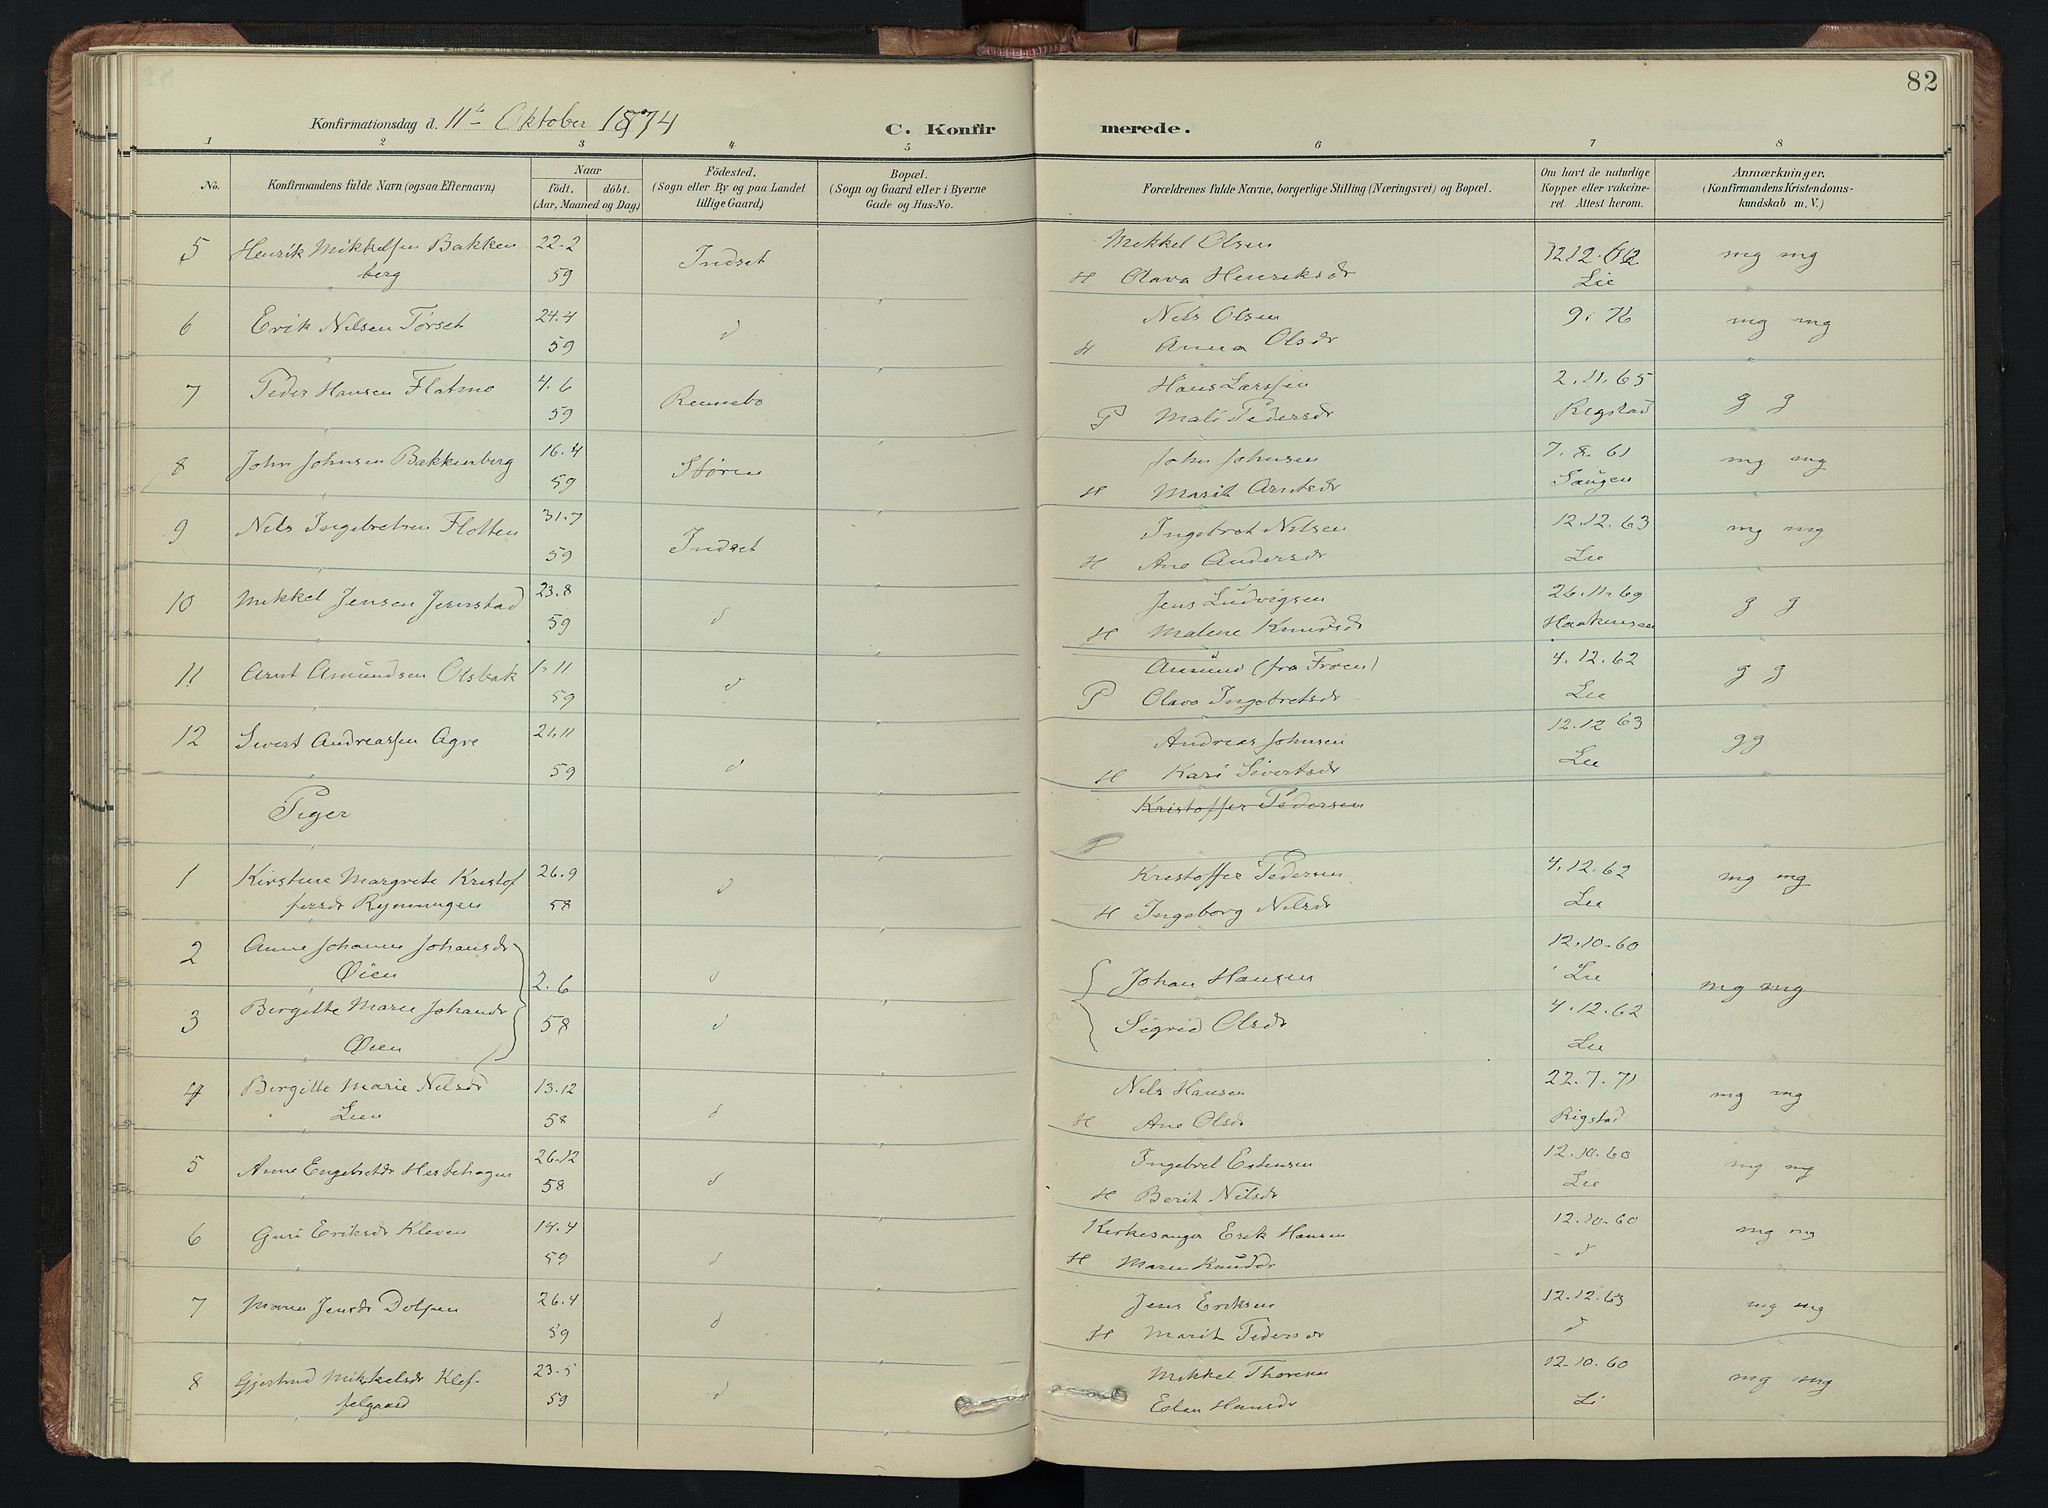 82
Konfirmationsdag d. 11te Oktober 1874
C. Konfirmerede.
1 2 3 4 5 6 7 8
No. Konfirmandens fulde Navn (ogsaa Efternavn) Naar født. døbt. (Aar, Maaned og Dag) Fødested. (Sogn eller By og paa Landet tillige Gaard) Bopæl. (Sogn og Gaard eller i Byerne Gade og Hus-No. Forældrenes fulde Navne, borgerlige Stilling (Næringsvei) og Bopæl. Om havt de naturlige Kopper eller vakcineret. Attest herom. Anmærkninger. (Konfirmandens Kristendomskundskab m. V.)
5 Henrik Mikkelsen Bakken 22-2 Indset Mikkel Olsen 12 12-62 mg mg
berg 59 H Olava Henriksdr Lie
6 Erik Nilsen Tørset 24.4 d Nels Olsen mg mg
59 H Anna Olsdr
7 Peder Hansen Flatmo 4.6 Rennebo Hans Larssen 2.11.65 g g
59 P Mali Pedersdr Rigstad
8 John Johnsen Bakkenberg 16.4 Støren John Johnsen 7.8.61 mg mg
59 H Marit Arntsdr
9 Nils Ingebretsen Flotten 31.7 Indset Ingebret Nilsen 12.12.63 mg mg
59 H Ane Andersdr Lie
10 Mikkel Jensen Jernstad 23.8 d Jens Ludvigsen 26.11.69 g g
59 H Malene Knudsdr Haakensen
11 Arnt Amundsen Olsbak 1.11 d Amund (fra Froen) 4.12.62 g g
59 P Olava Ingebretsdr Lie
12 Sivert Andreassen Agve 21.11 d Andreas Johnsen 12.12 63 g g
59 H Kari Sivertsdr Lie
Piger Kristoffer Pedersen
P
1 Kirstine Margrete Kristof 26.9 d Kristoffer Pedersen 4.12.62 mg mg
fersdr Rymungen 58 H Ingeborg Nilsdr Lie
2 Anne Johanne Johansdr 12.10-60
Øien 2.6 d Johan Hansen Lie mg mg
3 Bergitte Marie Johansdr 58 d Sigrid Olsdr 4.12.62
Øien Lie
4 Bergitte Marie Nilsdr 13.12 Nils Hansen 22.7.71 mg mg
Lien 58 d H Ane Olsdr Rigstad
5 Anne Engebretsdr Hestehagen 26-12 Ingebret Estensen 12.10.60 mg mg
58 d H Berit Nilsdr Lie
6 Guri Eriksdr Kleven 14.4 Kirkesanger Erik Hansen 12.10-60 mg mg
59 d H Maren Knudsdr - d
7 Jensdr 26.4 Jens Eriksen 12.12.63 mg mg
59 d H Marit Pedersdr d
8 Gjertrud Mikkelsdr Klef- 23-5 d Mikkel 12-10.60 mg mg
felgaard 59 Hansdr Li